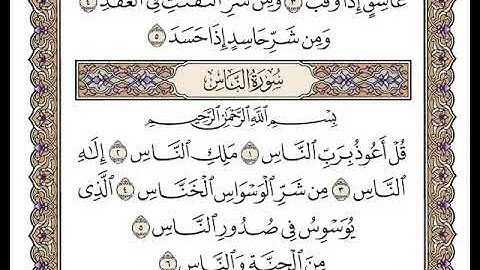 غَاسِقٍ إِذَا وَقَبَ ٣ وَمِن شَرِّ ٱلنَّفَّٰثَٰتِ فِى ٱلْعُقَدِ ٤
وَمِن شَرِّ حَاسِدٍ إِذَا حَسَدَ ٥
سُورَةُ النَّاسِ
بِسْمِ ٱللَّهِ ٱلرَّحْمَٰنِ ٱلرَّحِيمِ
قُلْ أَعُوذُ بِرَبِّ ٱلنَّاسِ ١ مَلِكِ ٱلنَّاسِ ٢ إِلَٰهِ
ٱلنَّاسِ ٣ مِن شَرِّ ٱلْوَسْوَاسِ ٱلْخَنَّاسِ ٤ ٱلَّذِى
يُوَسْوِسُ فِى صُدُورِ ٱلنَّاسِ ٥
مِنَ ٱلْجِنَّةِ وَٱلنَّاسِ ٦